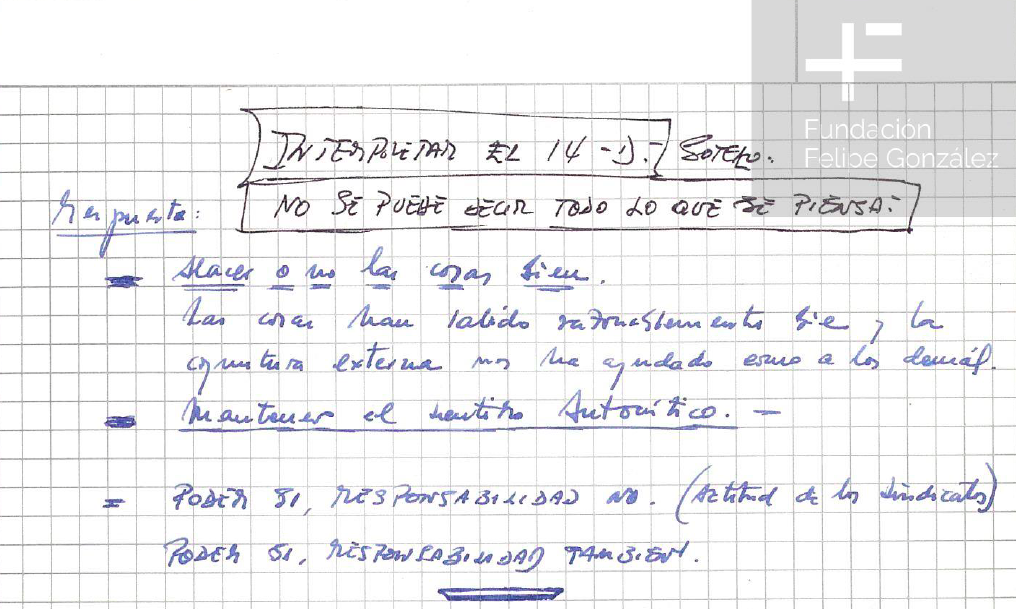 Fundación
Felipe González
INTERPRETAR EL 14-D. SOTELO.
NO SE PUEDE DECIR TODO LO QUE SE PIENSA.
Respuesta:
Hacer o no las cosas bien.
Las cosas han salido razonablemente bie y la
coyuntura externa nos ha ayudado como a los demás.
Mantener el sentido Autocrítico. —
= PODER SI, RESPONSABILIDAD NO. (Actitud de los sindicatos)
PODER SI, RESPONSABILIDAD TAMBIEN.